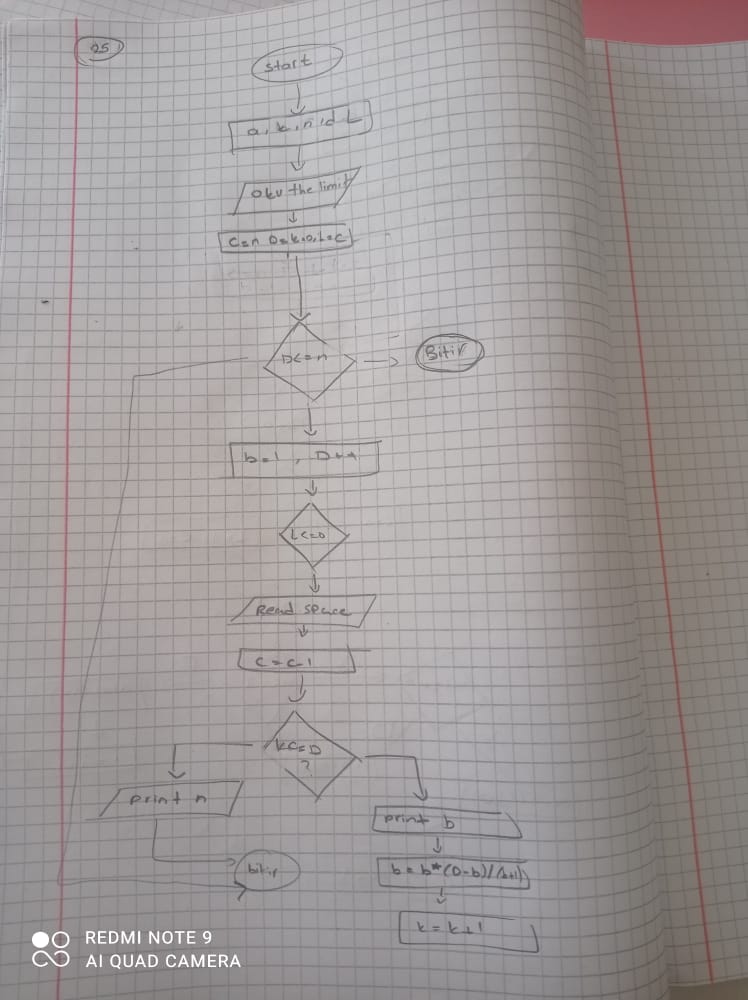 25
start
a, k, n, d L
Oku the limit
C=n D=k=0, L=C
D<=n
Bitir
b=1, D++
L<=0
Read space
C=C-1
k<=D
?
print n
print b
b=b*(D-b)/(b+1)
bitir
k=k+1
REDMI NOTE 9
AI QUAD CAMERA